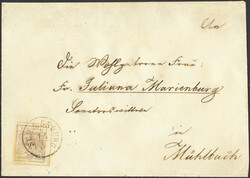 An
die Wohlgeborene Frau
Fr. Juliana Marienburg
Senatorswittwe
in
Mühlbach